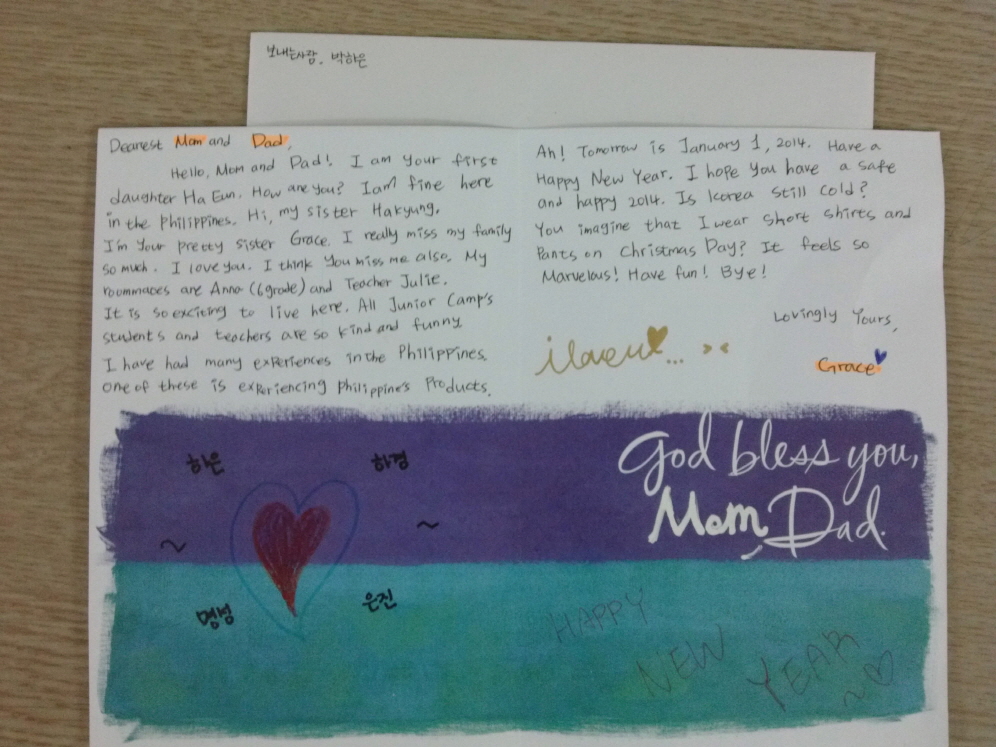 보내는사람. 박하은
Dearest Mom and Dad,
Hello, Mom and Dad! I am your first
daughter Ha Eun. How are you? I am fine here
in the Philippines. Hi, my sister Hakyung.
I'm your pretty sister Grace. I really miss my family
so much. I love you. I think you miss me also. My
roommates are Anna (6grade) and Teacher Julie.
It is so exciting to live here. All Junior Camp's
students and teachers are so kind and funny.
I have had many experiences in the Philippines.
One of these is experiencing Philippine's Products.
Ah! Tomorrow is January 1, 2014. Have a
Happy New Year. I hope you have a safe
and happy 2014. Is Korea still cold?
You imagine that I wear short shirts and
Pants on Christmas Day? It feels so
Marvelous! Have fun! Bye!
Lovingly Yours,
i love u...
Grace
God bless you,
Mom, Dad.
하은 하경
명성 은진
HAPPY
NEW
YEAR~